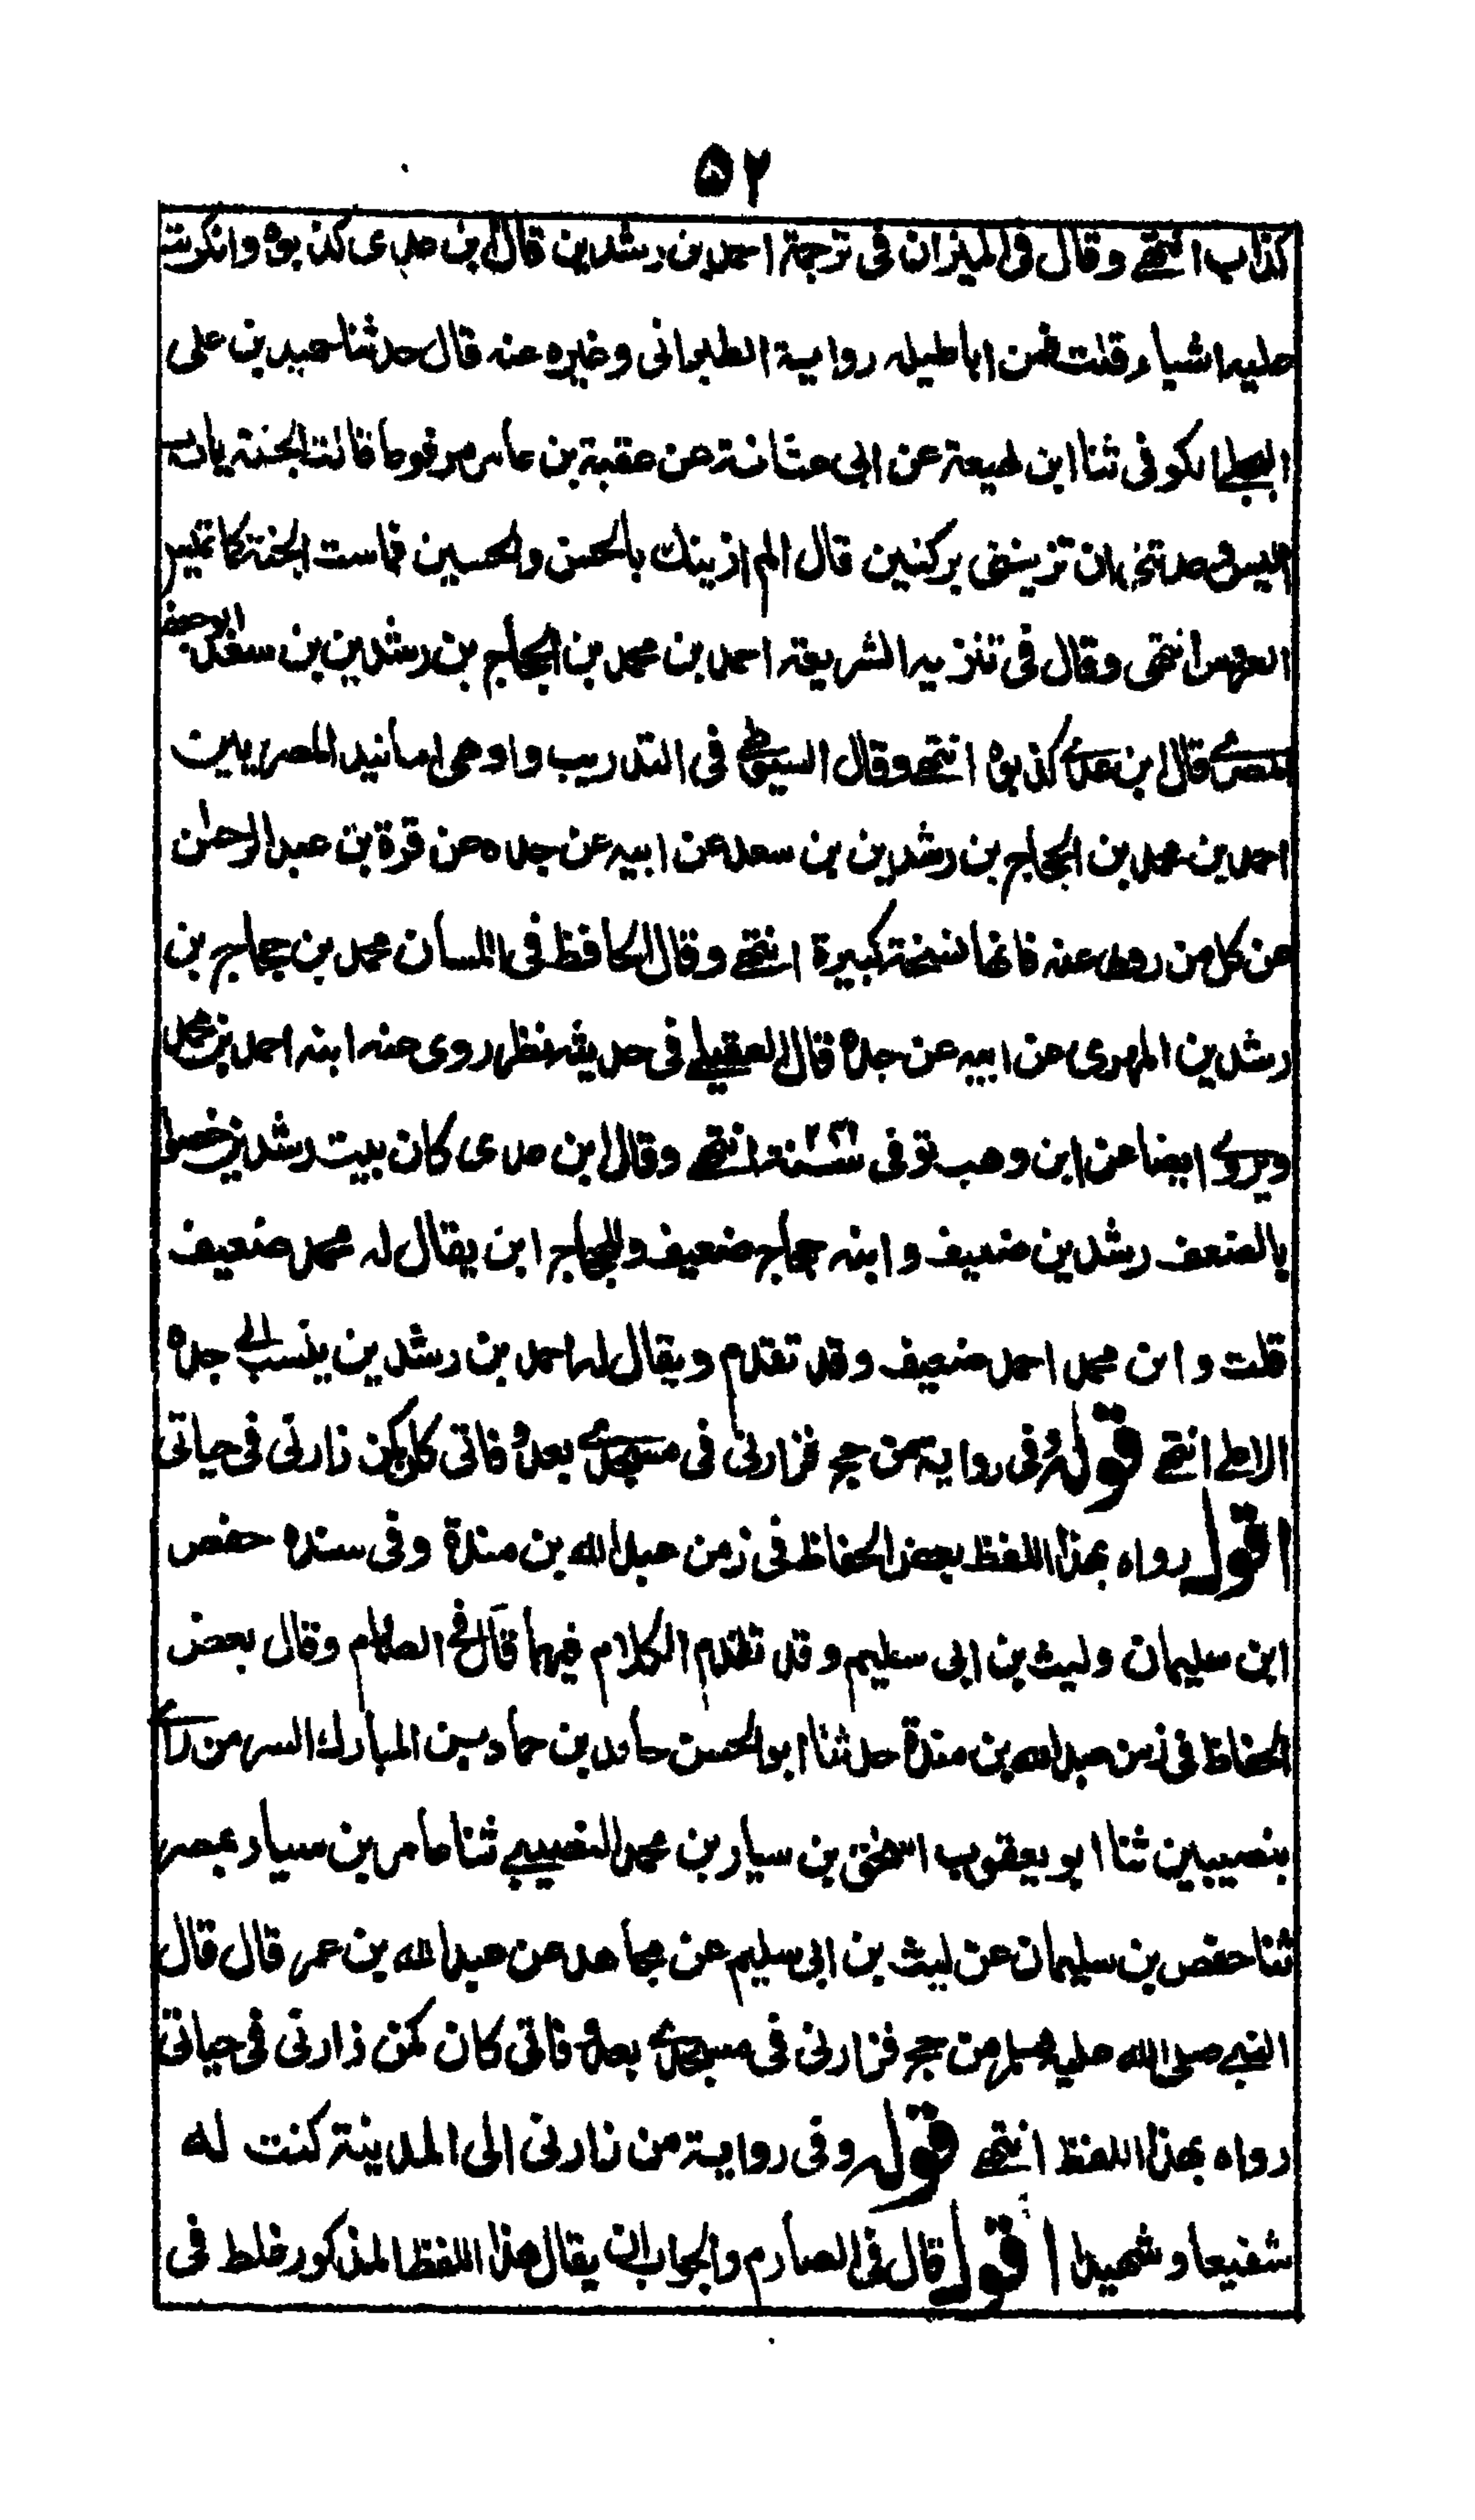 ٥٢
كذاب انتهى وقال فى الميزان فى ترجمة احمد بن رشدين قال ابن عدى كذبوه وانكرت
عليه اشياء قلت فمن اباطيله رواية الطبرانى وغيره عنه قال حدثنا حميد بن على
البجلى الكوفى ثنا ابن لهيعة عن ابى عشانة عن عقبة بن عامر مرفوعا قالت الجنة يا رب
اليس وعدتنى ان تزيننى بركنين قال الم ازينك بالحسن والحسين فماست الجنة كما تميس
العروس انتهى وقال فى تنزيه الشريعة احمد بن محمد بن الحجاج بن رشدين بن سعد ابو جعفر
المصرى قال ابن عدى كذبوه انتهى وقال السيوطى فى التدريب واوهى اسانيد المصريين
احمد بن محمد بن الحجاج بن رشدين بن سعد عن ابيه عن جده عن قرة بن عبد الرحمٰن
عن كل من روى عنه فانها نسخة كبيرة انتهى وقال الحافظ فى اللسان محمد بن حجاج بن
رشدين المهرى عن ابيه عن جده قال العقيلى فى حديثه نظر روى عنه ابنه احمد بن محمد
ويروى ايضا عن ابن وهب توفى سنة ٢٤٢ انتهى وقال ابن عدى كان بيت رشدين خصوا
بالضعف رشدين ضعيف وابنه حجاج ضعيف وللحجاج ابن يقال له محمد ضعيف
قلت وابن محمد احمد ضعيف وقد تقدم ويقال له احمد بن رشدين ينسب الى جده
الاعلى انتهى قوله وفى رواية من حج فزارنى فى مسجدى بعد وفاتى كان كمن زارنى فى حياتى
اقول رواه بهذا اللفظ بعض الحفاظ فى زمن عبد الله بن مندة وفى سنده حفص
ابن سليمان وليث بن ابى سليم وقد تقدم الكلام فيهما قال فى الصارم وقال بعض
الحفاظ فى زمن عبد الله بن مندة حدثنا ابو الحسن حامد بن حماد بن المبارك السر من رائى
بنصيبين ثنا ابو يعقوب اسحٰق بن سيار بن محمد النصيبى ثنا عامر بن سيار بمصر
ثنا حفص بن سليمان عن ليث بن ابى سليم عن مجاهد عن عبد الله بن عمر قال قال
النبى صلى الله عليه وسلم من حج فزارنى فى مسجدى بعد وفاتى كان كمن زارنى فى حياتى
رواه بهذا اللفظ انتهى قوله وفى رواية من زارنى الى المدينة كنت له
شفيعا وشهيدا اقول قال فى الصارم والجواب ان يقال هذا اللفظ المذكور غلط فى